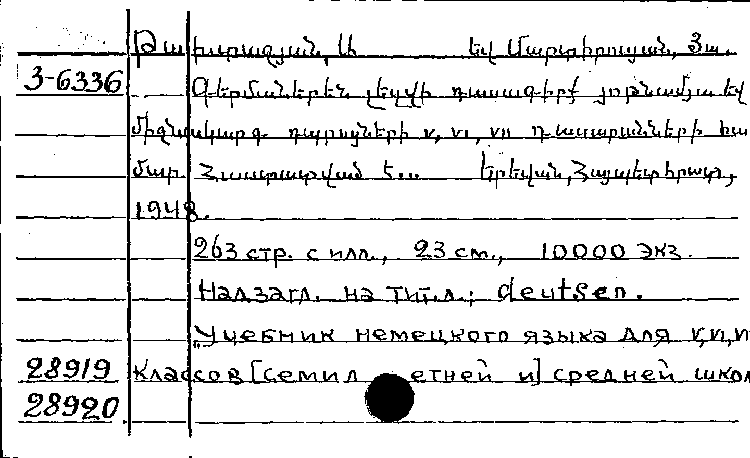 Թախտաջյան, Ա եվ Մարտիրոսյան, Յա.
3-6336 Գերմաներեն լեզվի դասագիրք յոթնամյա եվ
միջնակարգ դպրոցների V, VI, VII դասարանների հա
մար Հաստատված է... Երեվան, Հայպետհրատ,
1948.
263 стр. с илл., 23 см., 10000 экз.
Надзагл. на тит.л.: deutsen.
"Учебник немецкого языка для V, VI, VI
28919 классов [семил етней и] средней школ
28920